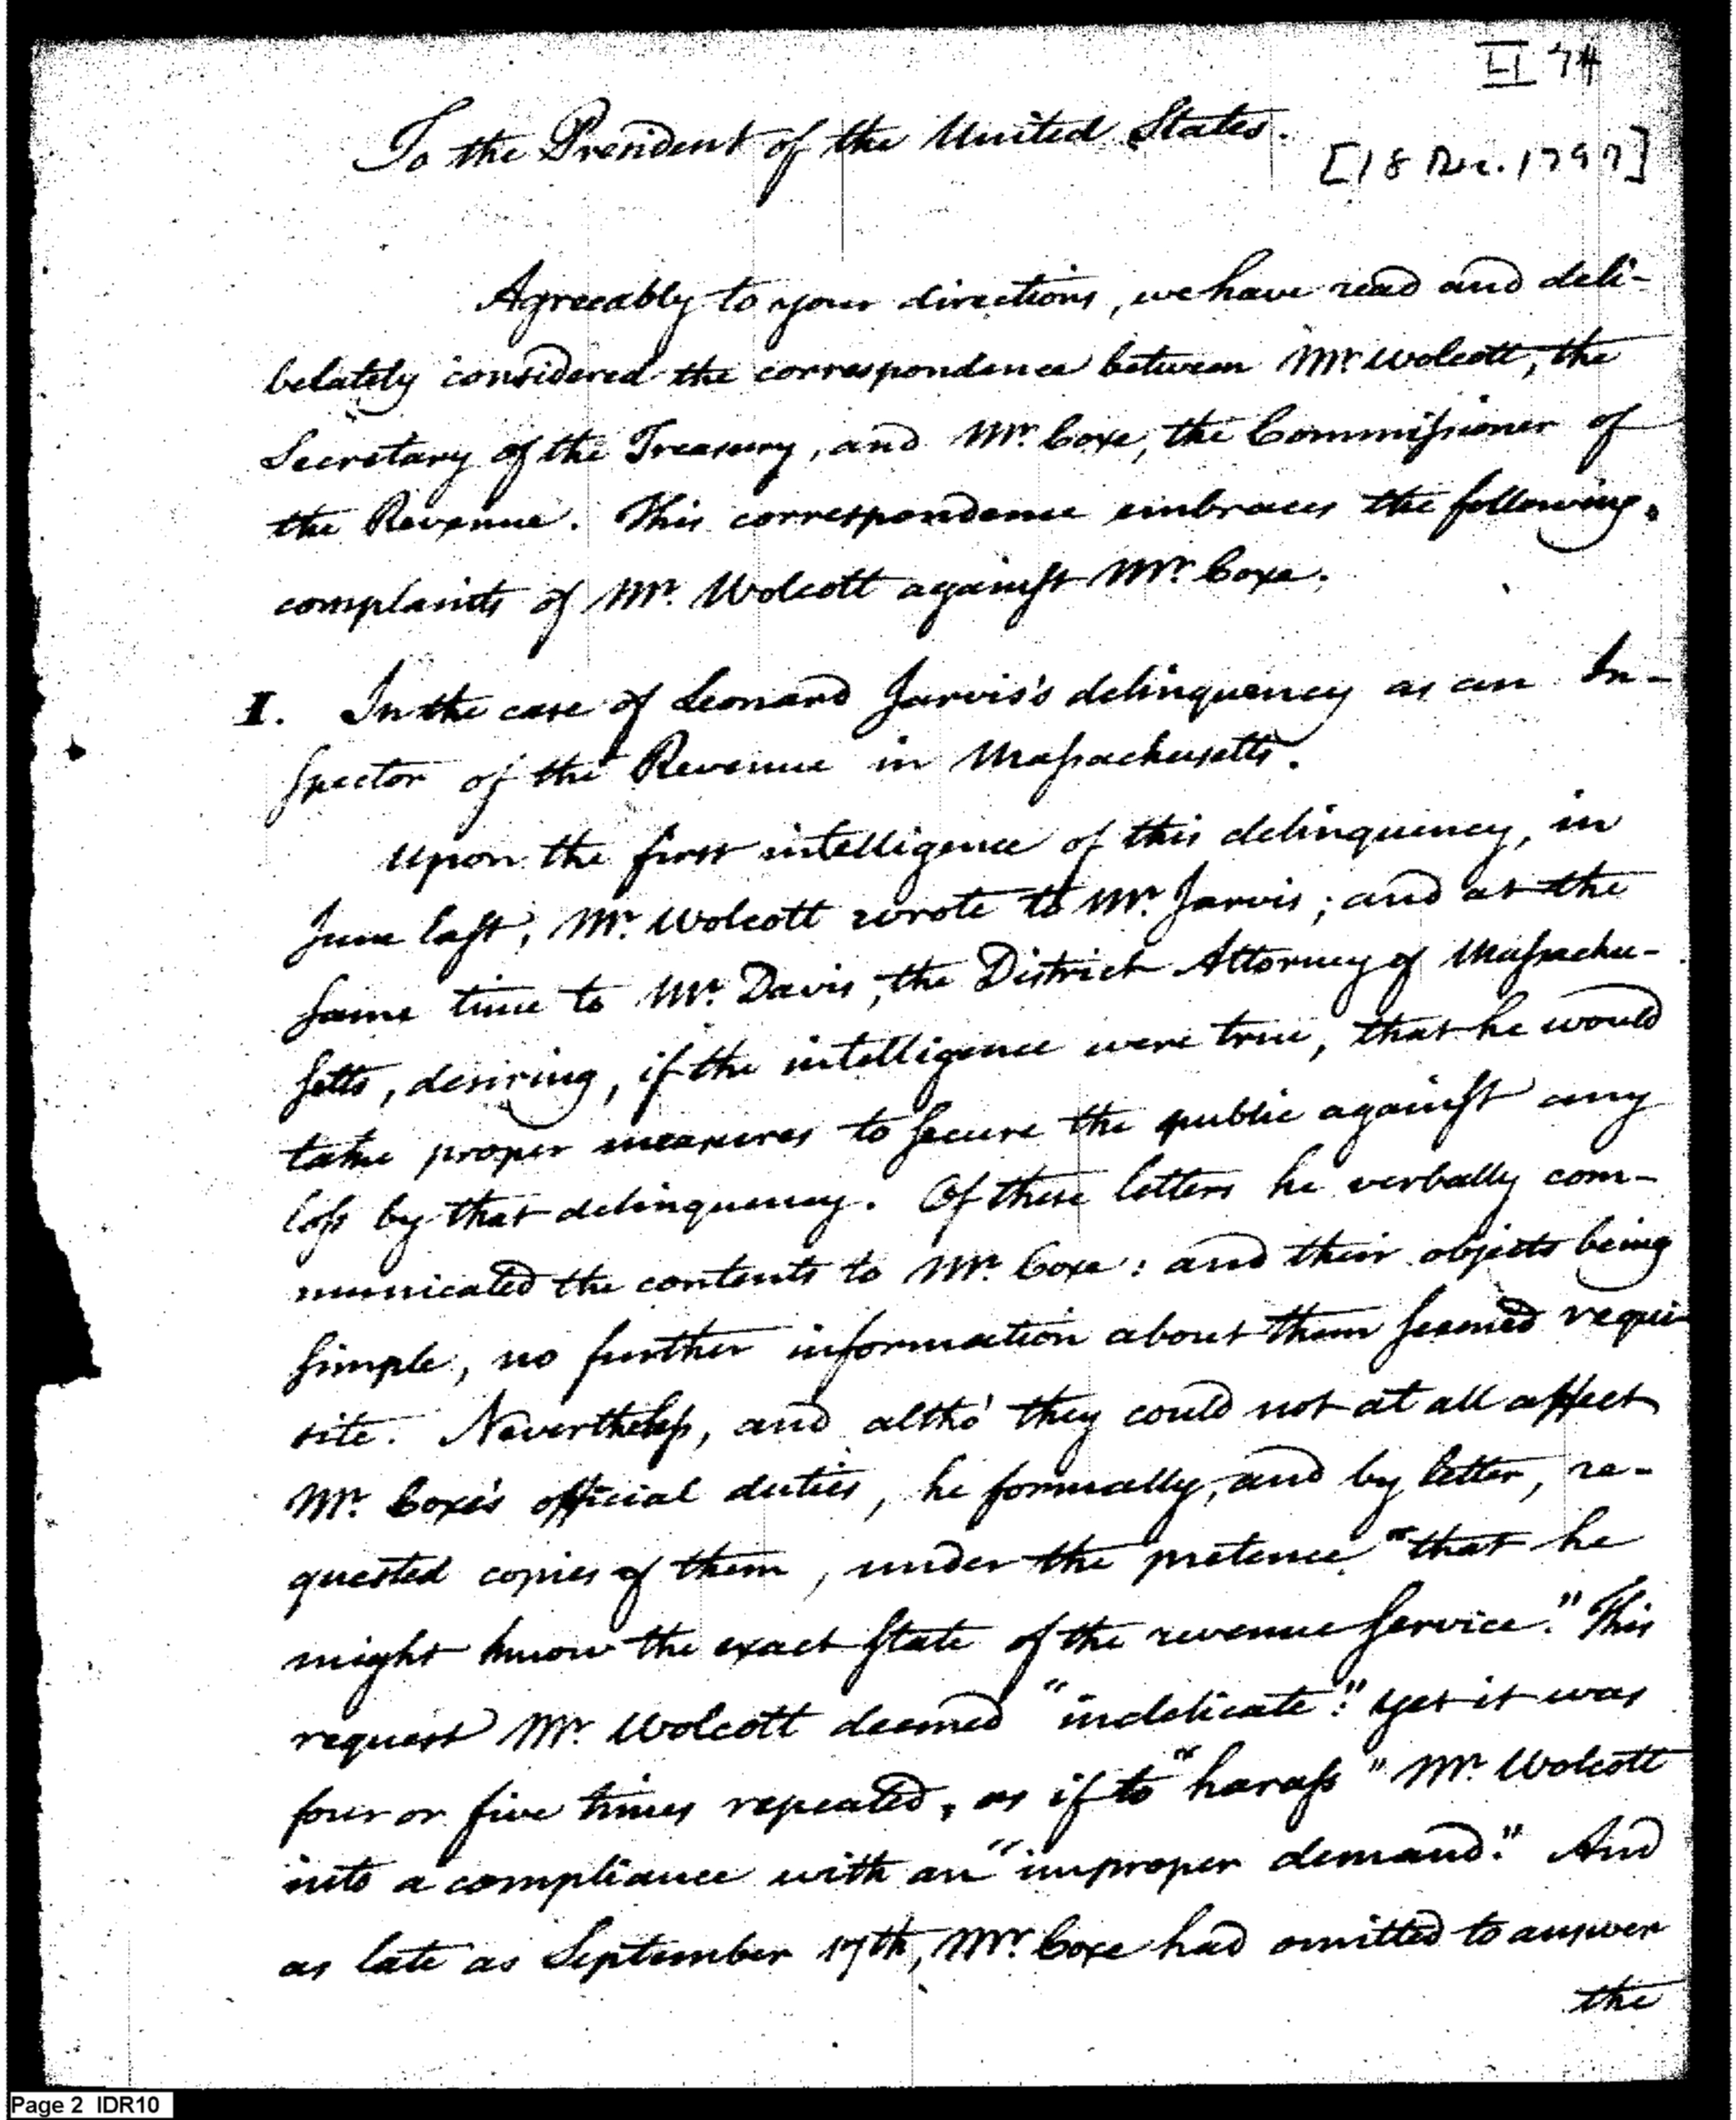 II 74
To the President of the United States.
[18 Dec. 1797]
Agreeably to your directions, we have read and deli-
belately considered the correspondence between Mr. Wolcott, the
Secretary of the Treasury, and Mr. Coxe, the Commissioner of
the Revenue. This correspondence embraces the following
complaints of Mr. Wolcott against Mr. Coxe.
I. In the case of Leonard Jarvis's delinquency as an In-
spector of the Revenue in Massachusetts.
Upon the first intelligence of this delinquency, in
June last, Mr. Wolcott wrote to Mr. Jarvis; and at the
same time to Mr. Davis, the District Attorney of Massachu-
setts, desiring, if the intelligence were true, that he would
take proper measures to secure the public against any
loss by that delinquency. Of these letters he verbally com-
municated the contents to Mr. Coxe: and their objects being
simple, no further information about them seemed requi-
site. Nevertheless, and altho' they could not at all affect
Mr. Coxe's official duties, he formally, and by letter, re-
quested copies of them, under the pretence "that he
might know the exact state of the revenue service." This
request Mr. Wolcott deemed "indelicate:" yet it was
four or five times repeated, as if to "harass" Mr. Wolcott
into a compliance with an "improper demand." And
as late as September 17th, Mr. Coxe had omitted to answer
the
Page 2 IDR10